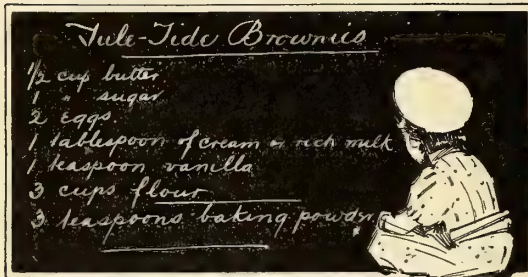 Yule-Tide Brownies
1/2 cup butter
1 " sugar
2 eggs
1 tablespoon of cream or rich milk
1 teaspoon vanilla
3 cups flour
3 teaspoons baking powder